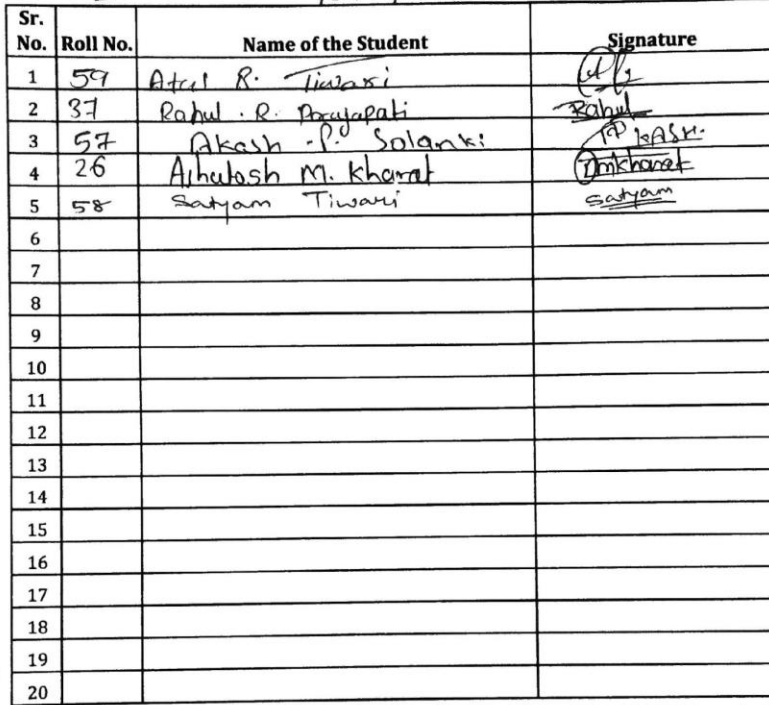 Sr. No. Roll No. Name of the Student Signature
1 59 Atul R. Tiwari
2 37 Rahul . R. Prajapati Rahul
3 57 Akash . P. Solanki
4 26 Ashutosh M. Kharat Amkharat
5 58 Satyam Tiwari Satyam
6
7
8
9
10
11
12
13
14
15
16
17
18
19
20